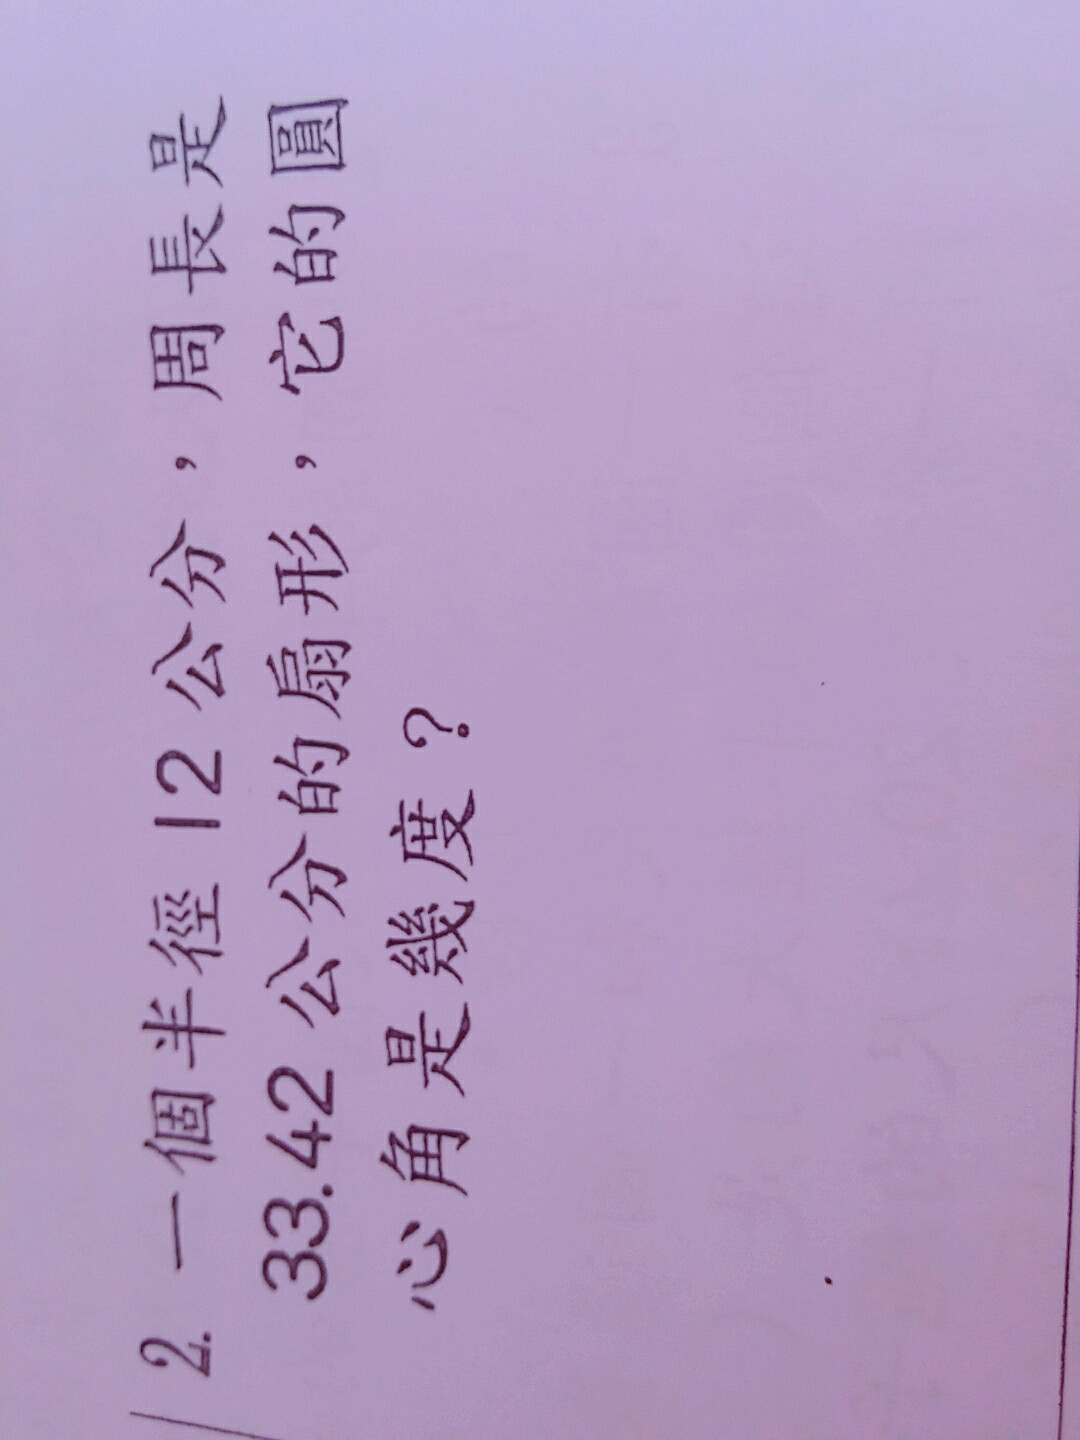 2. 一個半徑 12 公分，周長是
33.42 公分的扇形，它的圓
心角是幾度？